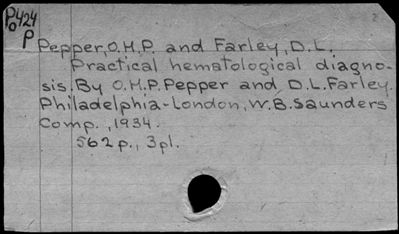 Po424
P
Pepper, O.H.P. and Farley, D.L.
Practical hematological diagno-
sis. By O.H.P. Pepper and D.L. Farley.
Philadelphia-London, W.B. Saunders
Comp., 1934.
562 p., 3 pl.